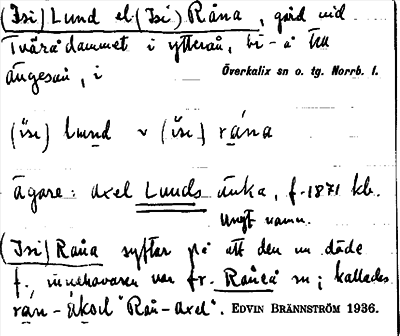 (Isi) Lund el. (Isi) Råna, gård vid
Tvärådammet i ytterån, bi-å till
ängesån, i
Överkalix sn o. tg. Norrb. l.
(ïsi) lund v (ïsi) rána
ägare: Axel Lunds änka, f. 1871 kb.
ungt namn.
(Isi) Råna syftar på att den nu döde
f. innehavaren var fr. Råneå sn; kallades
"Rån-Axel". EDVIN BRÄNNSTRÖM 1936.